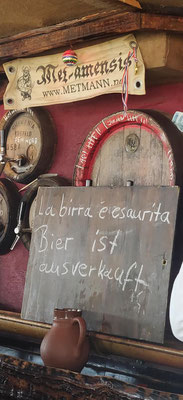 Met amensis
www.METMANN.net
La birra è esaurita
Bier ist
ausverkauft